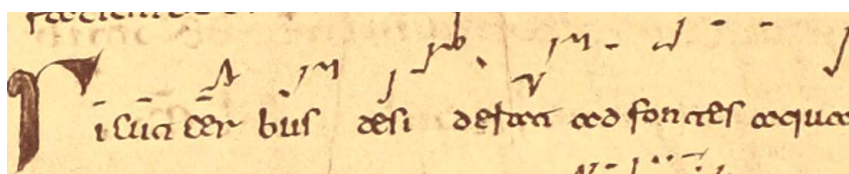 Sicut cer bus desi derat ad fontes aqua